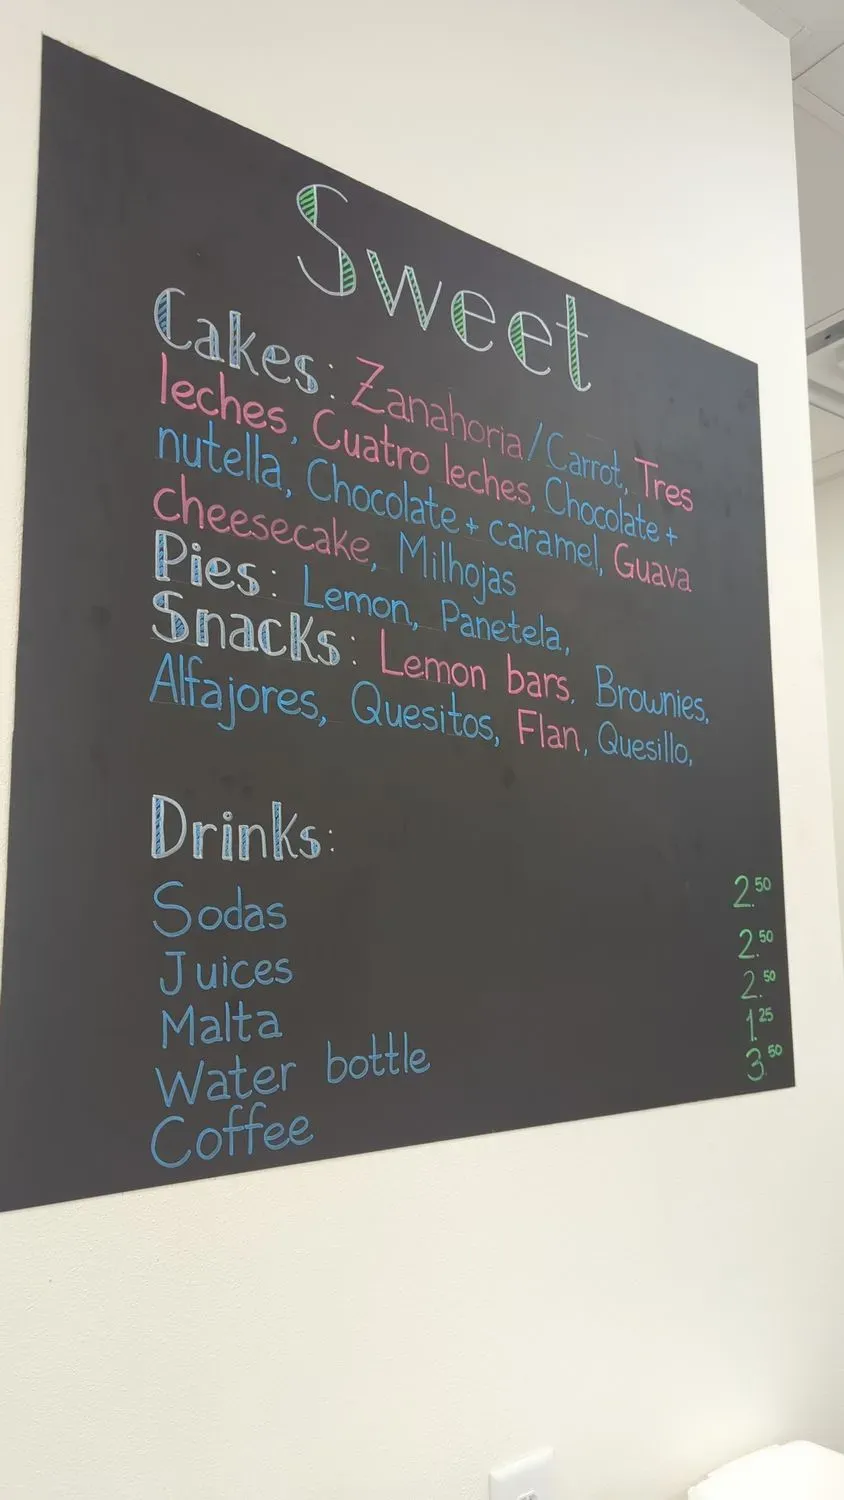 Sweet
Cakes: Zanahoria/Carrot, Tres
leches, Cuatro leches, Chocolate +
nutella, Chocolate + caramel, Guava
cheesecake, Milhojas
Pies: Lemon, Panetela,
Snacks: Lemon bars, Brownies,
Alfajores, Quesitos, Flan, Quesillo,
Drinks:
Sodas 2.50
Juices 2.50
Malta 2.50
Water bottle 1.25
Coffee 3.50